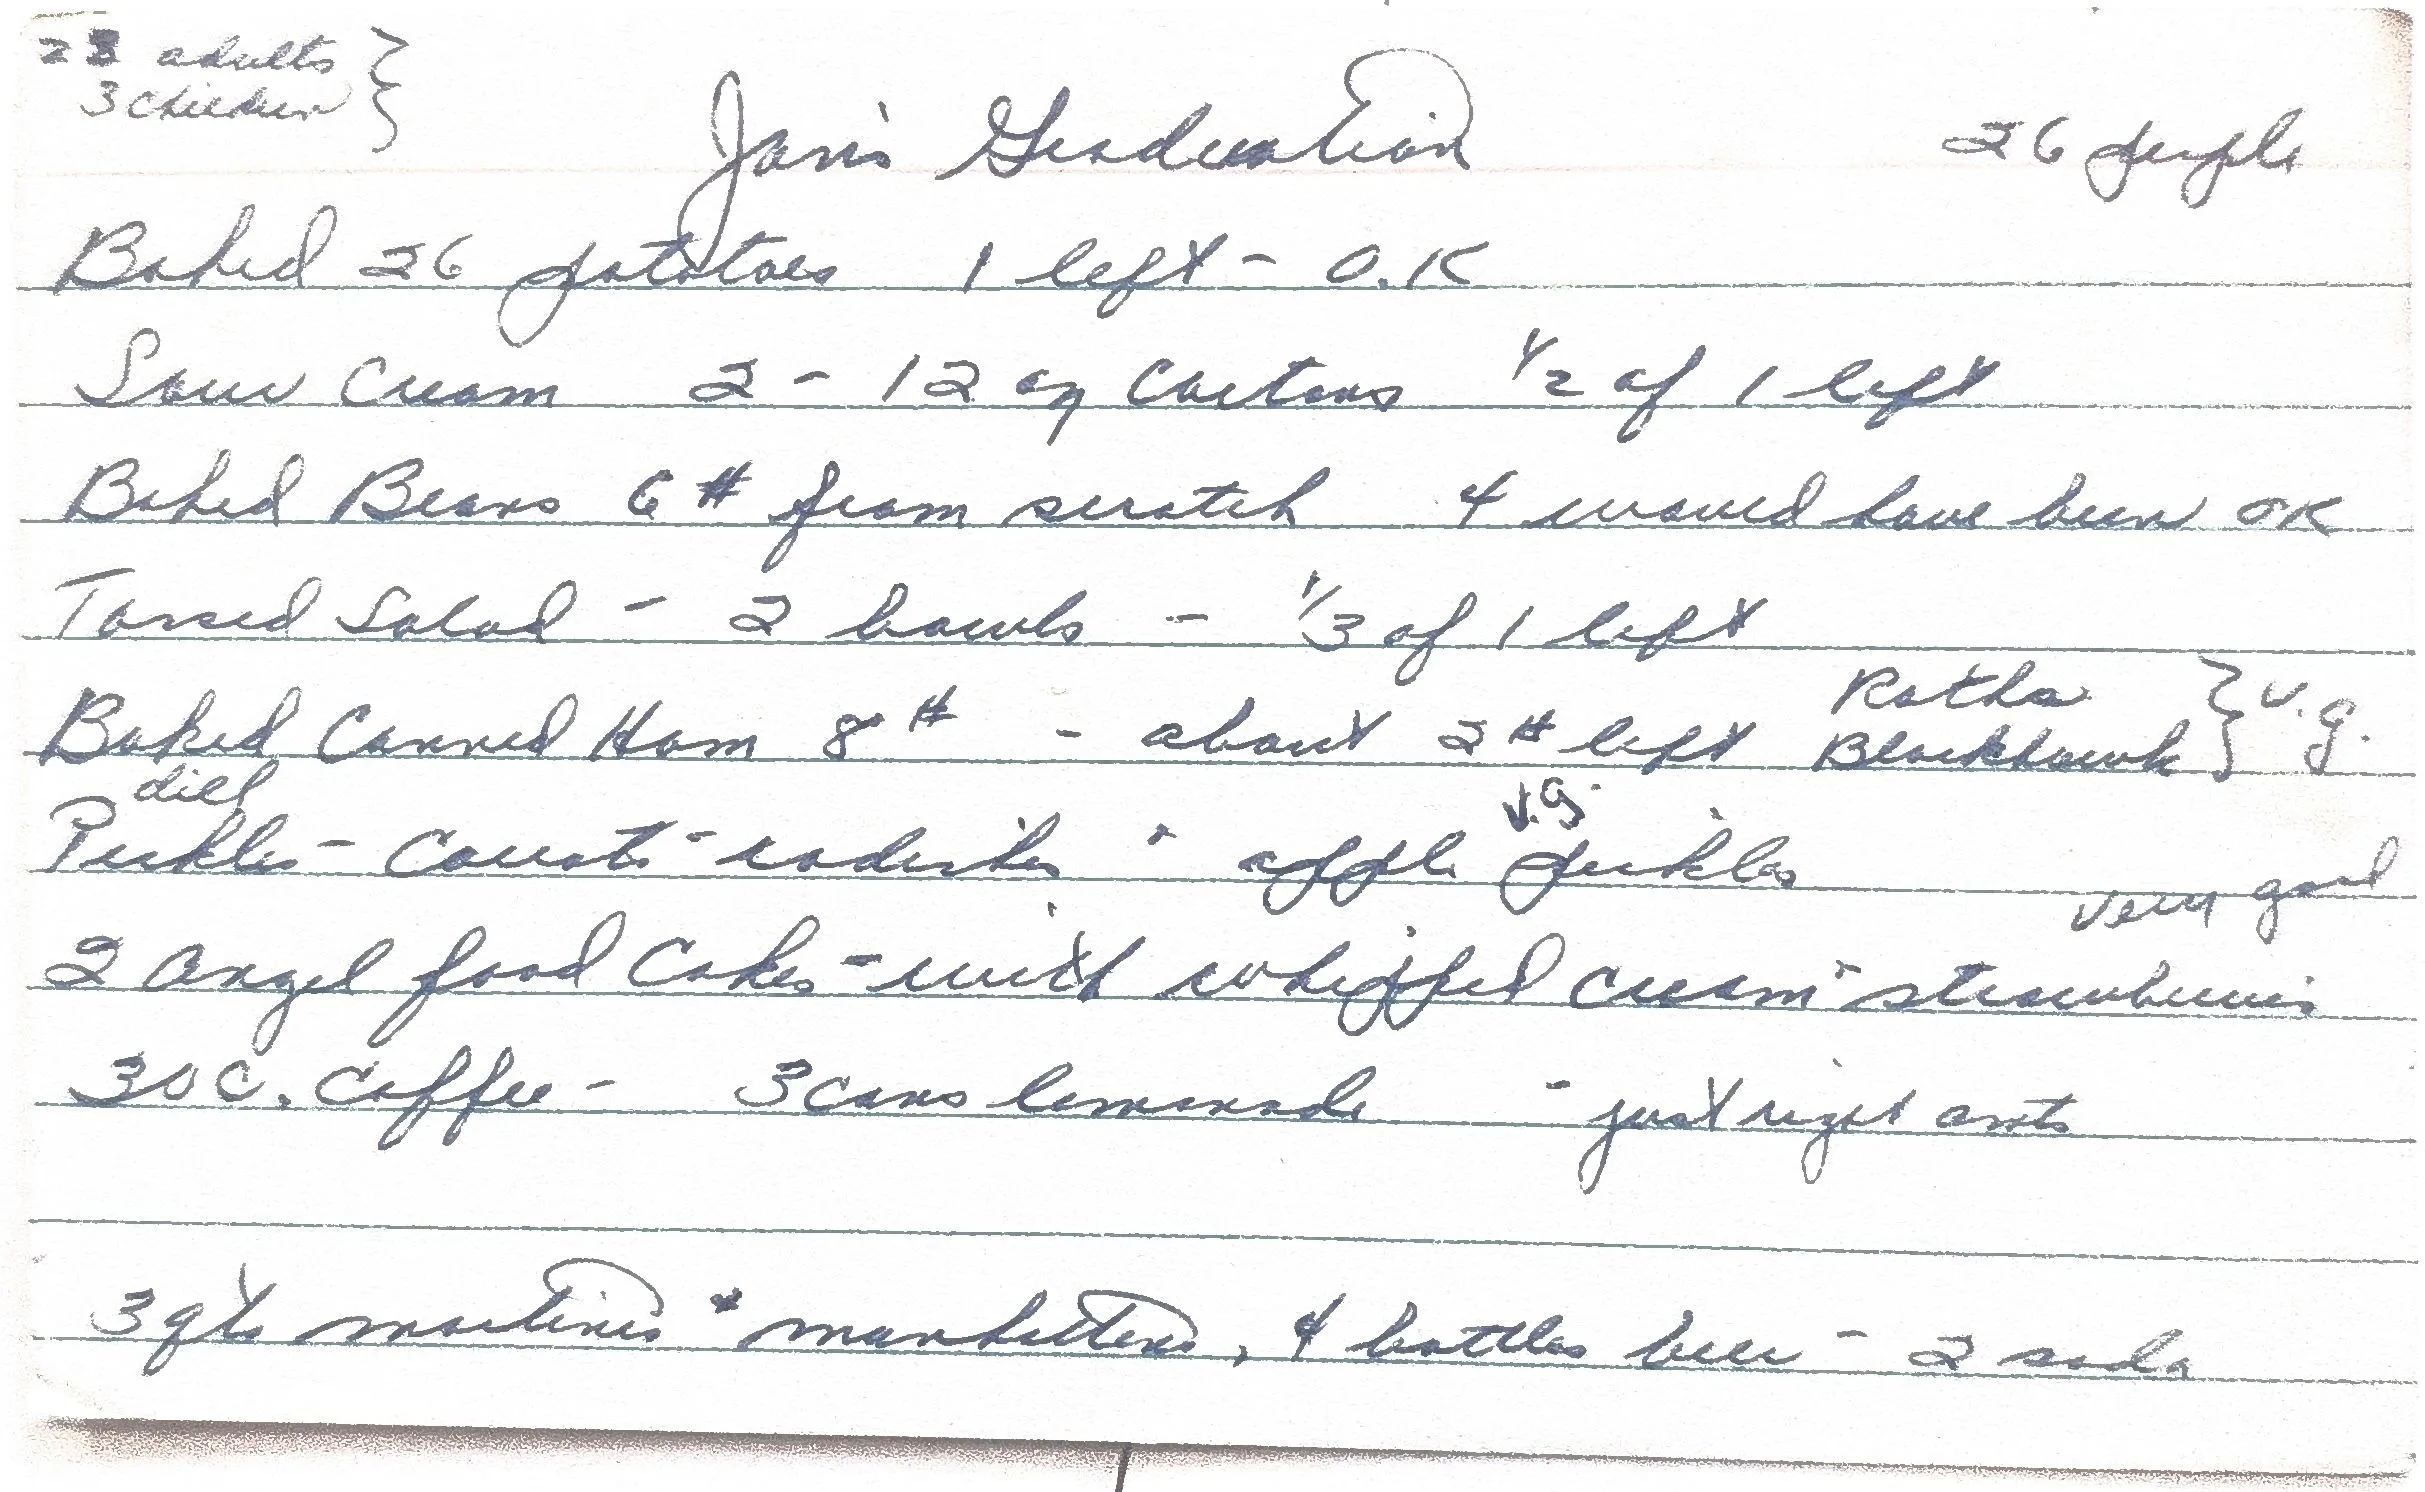 23 adults
3 children
Jan's Graduation 26 people
Baked 26 potatoes 1 left - O.K
Sour Cream 2 - 12 oz cartons 1/2 of 1 left
Baked Beans 6 # from scratch 4 would have been OK
Tossed Salad - 2 bowls - 1/3 of 1 left
Baked Canned Ham 8 # - about 2 # left Raths Blackhawk } v.g.
dill
Pickles - Carrots - radishes - apple pickles v.g.
very good
2 angel food cakes - with whipped cream - strawberries
30 C. Coffee - 3 cans lemonade - just right amts
3 qts martinis + manhattens, 4 bottles beer - 2 soda